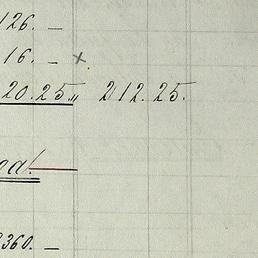 126. —
16. — x
20.25„ 212.25.
360. —